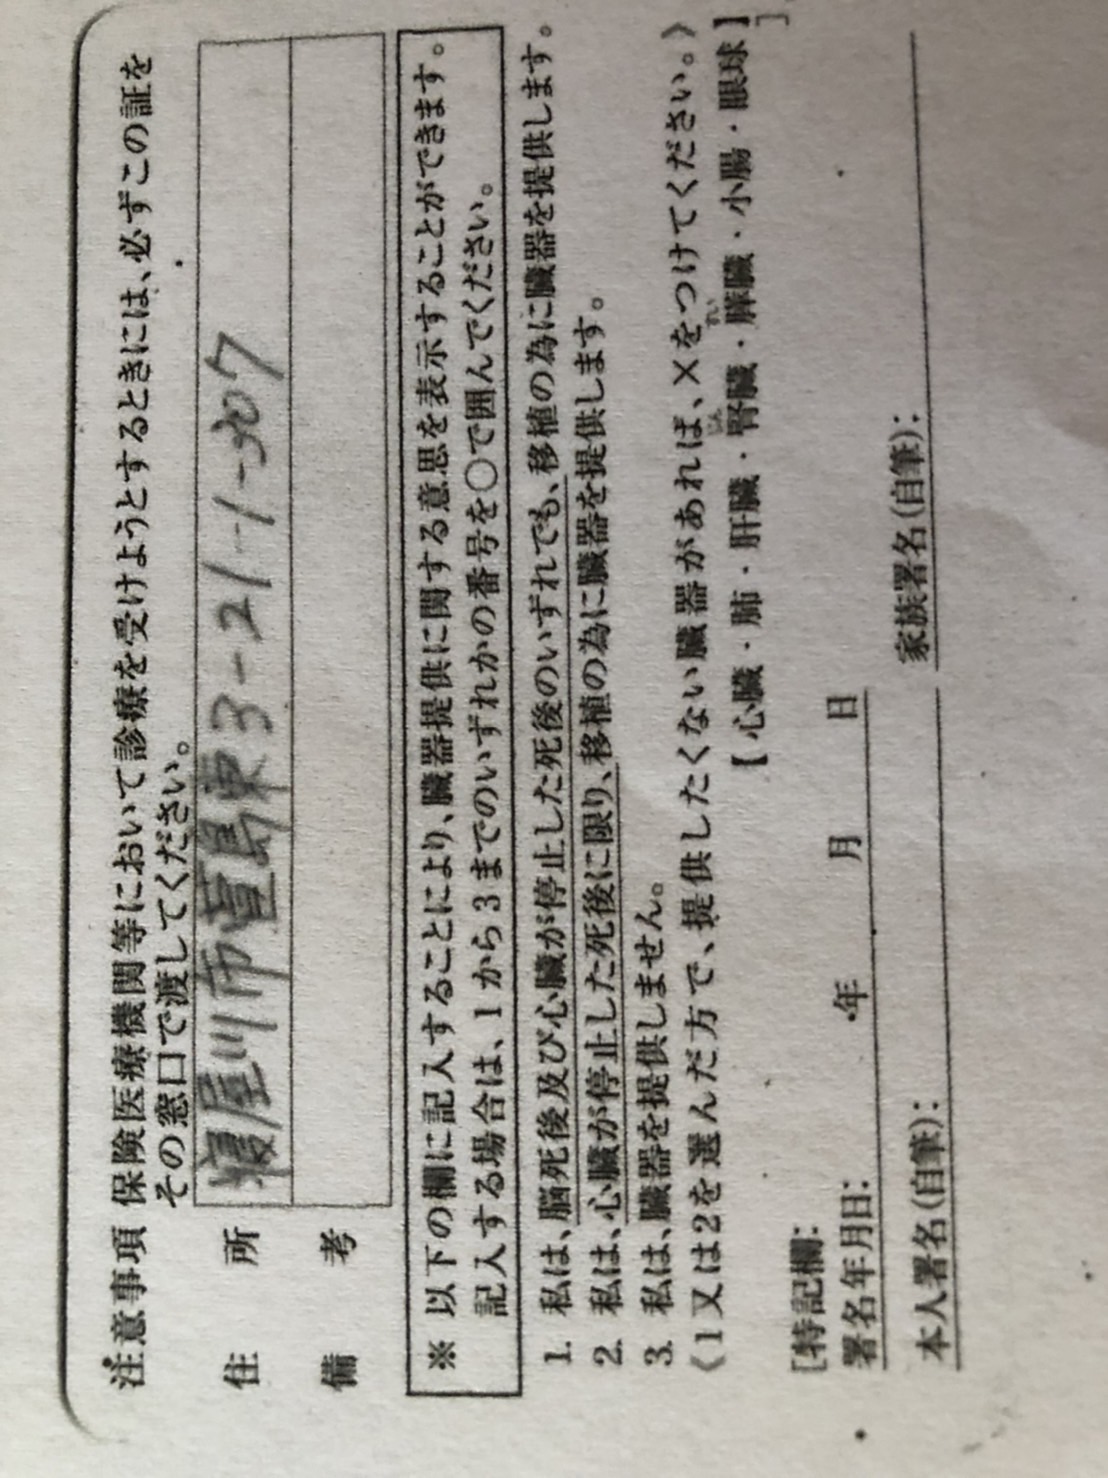 注意事項 保険医療機関等において診療を受けようとするときには、必ずこの証を
その窓口で渡してください。
住所 寝屋川市萱島東3-21-1-307
備考
※ 以下の欄に記入することにより、臓器提供に関する意思を表示することができます。
記入する場合は、1から3までのいずれかの番号を〇で囲んでください。
1. 私は、脳死後及び心臓が停止した死後のいずれでも、移植の為に臓器を提供します。
2. 私は、心臓が停止した死後に限り、移植の為に臓器を提供します。
3. 私は、臓器を提供しません。
《1又は2を選んだ方で、提供したくない臓器があれば、×をつけてください。》
【心臓・肺・肝臓・腎臓・膵臓・小腸・眼球】
[特記欄: ]
署名年月日: 年 月 日
本人署名(自筆): 家族署名(自筆):